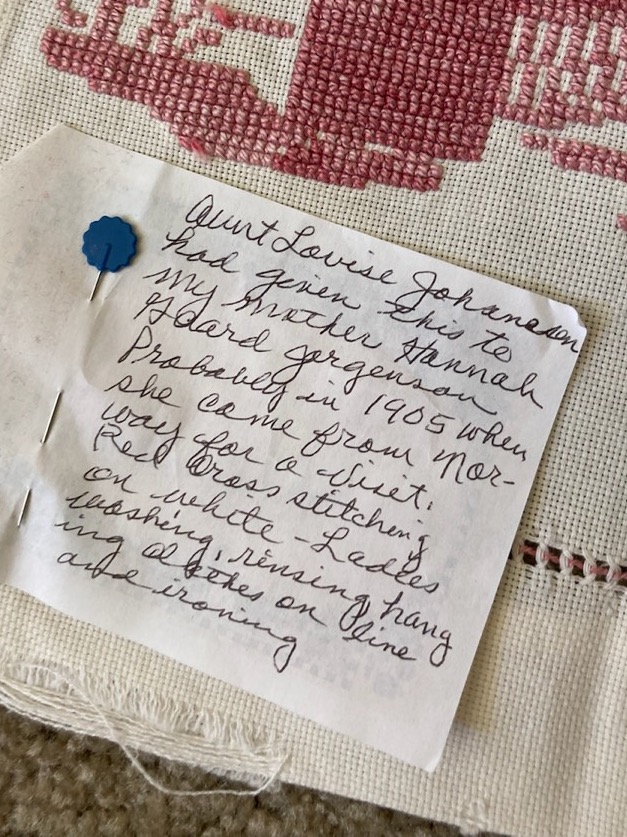 Aunt Louise Johanesen
had given this to
my mother Hannah
Gaard Jorgenson
Probably in 1905 when
she come from Nor-
way for a visit.
Red Cross stitching
on white - Ladies
washing, rinsing, hang
ing clothes on line
and ironing